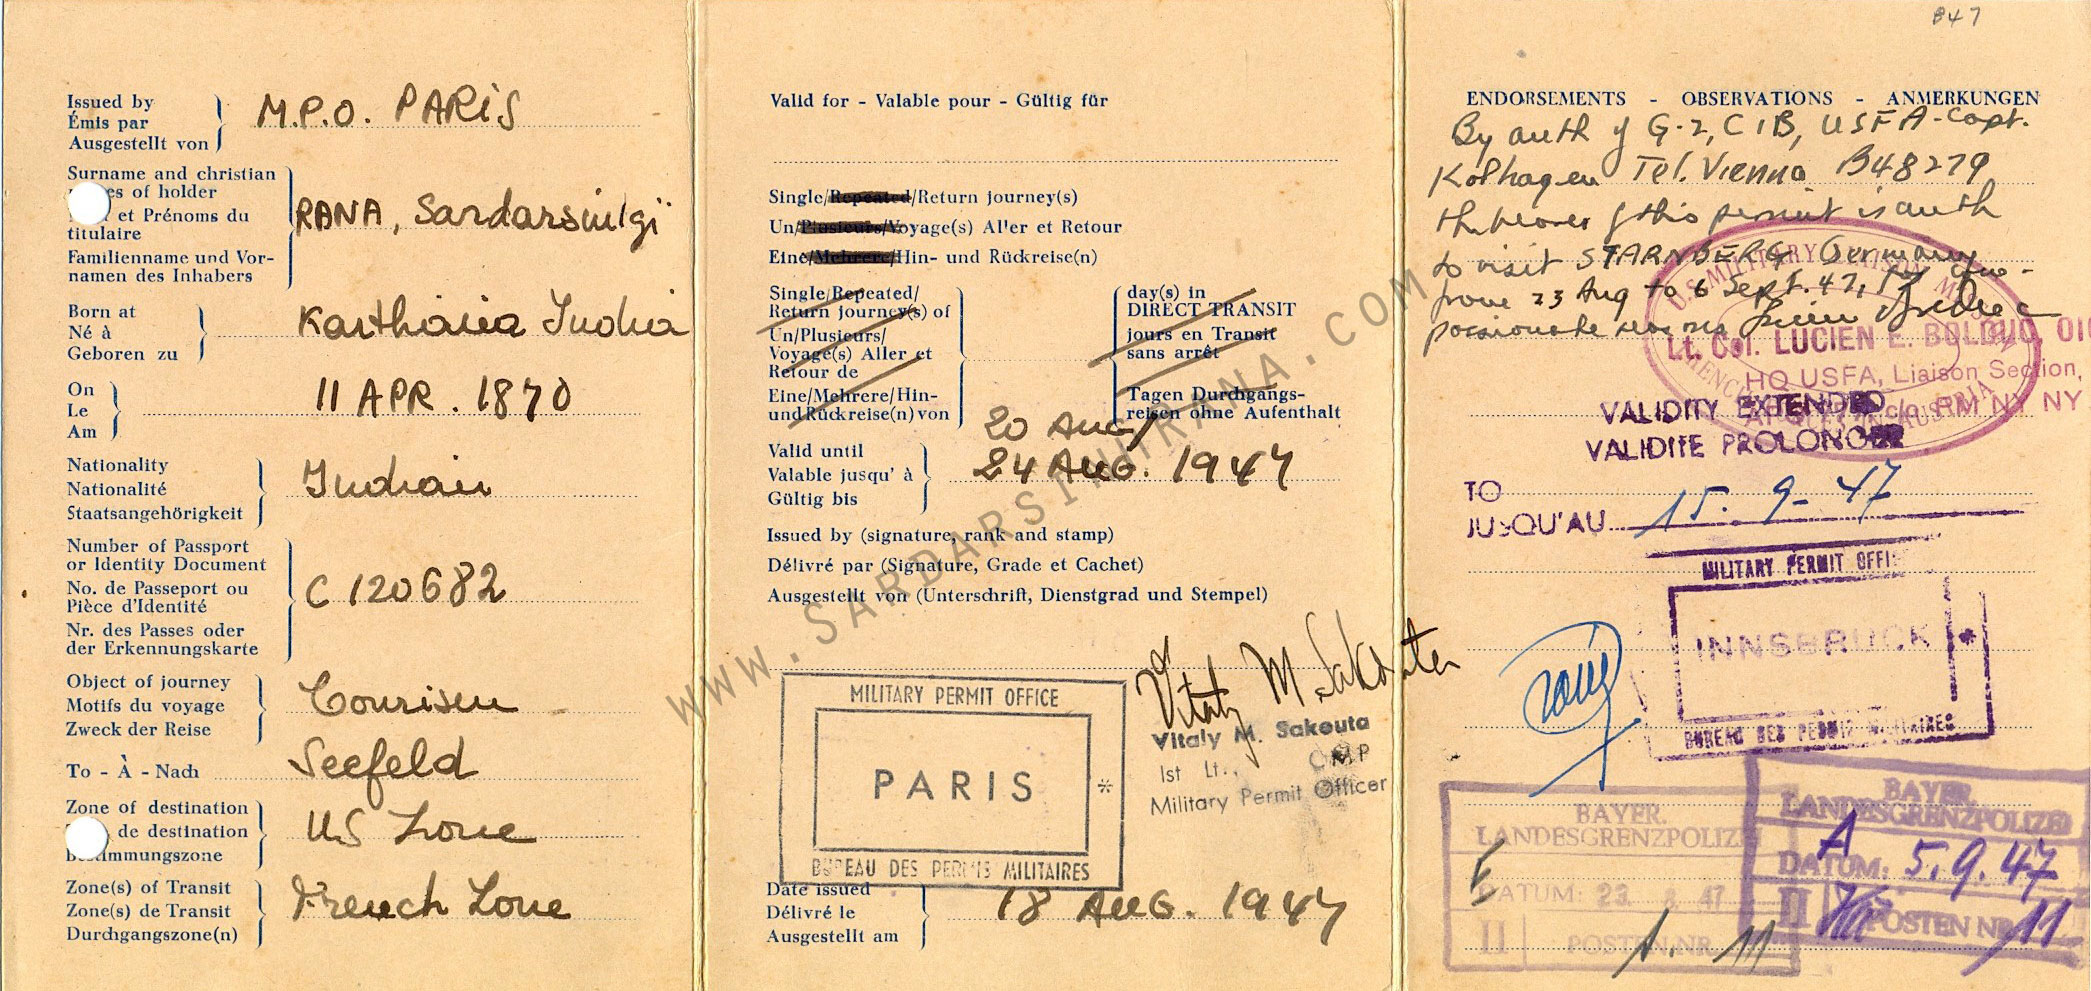 Issued by
Émis par
Ausgestellt von
M.P.O. PARIS
Surname and christian
es of holder
et Prénoms du
titulaire
Familienname und Vor-
namen des Inhabers
RANA, Sardarsinlgi
Born at
Né à
Geboren zu
India
On
Le
Am
11 APR. 1870
Nationality
Nationalité
Staatsangehörigkeit
Indian
Number of Passport
or Identity Document
No. de Passeport ou
Pièce d'Identité
Nr. des Passes oder
der Erkennungskarte
C 120682
Object of journey
Motifs du voyage
Zweck der Reise
Tourism
To - À - Nach
Seefeld
Zone of destination
de destination
immungszone
US Zone
Zone(s) of Transit
Zone(s) de Transit
Durchgangszone(n)
French Zone
Valid for - Valable pour - Gültig für
Single/Repeated/Return journey(s)
Un/Plusieurs/Voyage(s) Aller et Retour
Eine/Mehrere/Hin- und Rückreise(n)
Single/Repeated/
Return journey(s) of
Un/Plusieurs/
Voyage(s) Aller et
Retour de
Eine/Mehrere/Hin-
und Rückreise(n) von
day(s) in
DIRECT TRANSIT
jours en Transit
sans arrêt
Tagen Durchgangs-
reisen ohne Aufenthalt
Valid until
Valable jusqu' à
Gültig bis
20 Aug
24 AUG. 1947
Issued by (signature, rank and stamp)
Délivré par (Signature, Grade et Cachet)
Ausgestellt von (Unterschrift, Dienstgrad und Stempel)
MILITARY PERMIT OFFICE
PARIS *
BUREAU DES PERMIS MILITAIRES
Vitaly M. Sakouta
Vitaly M. Sakouta
1st Lt., CMP
Military Permit Officer
Date issued
Délivré le
Ausgestellt am
18 AUG. 1947
WWW.SARDARSINHRANA.COM
847
ENDORSEMENTS - OBSERVATIONS - ANMERKUNGEN
By auth of G-2, CIB, USFA-Capt.
Kolhagen Tel. Vienna B48279
the bearer of this permit is auth
to visit STARNBERG Germany
from 23 Aug to 6 Sept. 47,
U.S. MILITARY LIAISON
AUSTRIA
Lt. Col. LUCIEN E. BOLDUC, OIC
HQ USFA, Liaison Section,
c/o PM NY NY
VALIDITY EXTENDED
VALIDITE PROLONGEE
TO
JUSQU'AU 15.9-47
MILITARY PERMIT OFFI
INNSBRUCK *
BUREAU DES PERMIS MILITAIRES
BAYER.
LANDESGRENZPOLIZEI
E
DATUM: 23. 8. 47
II POSTEN NR. 11
BAYER.
LANDESGRENZPOLIZEI
A
DATUM: 5.9.47
II POSTEN NR. 11